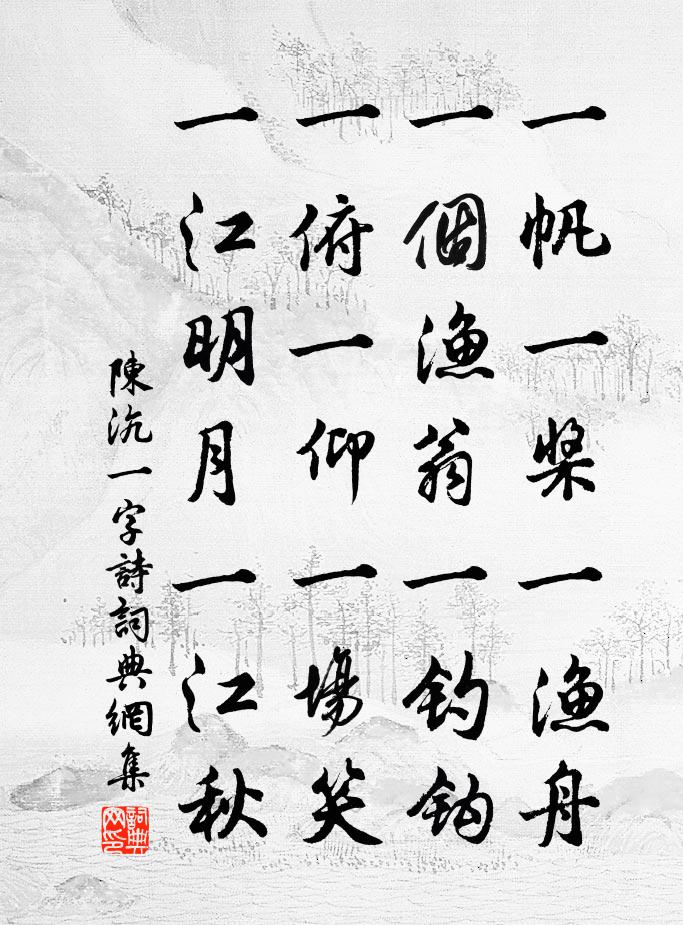 一帆一桨一漁舟
一個漁翁一釣鈎
一俯一仰一場笑
一江明月一江秋
陳沆一字詩詞典網集
詞典網印